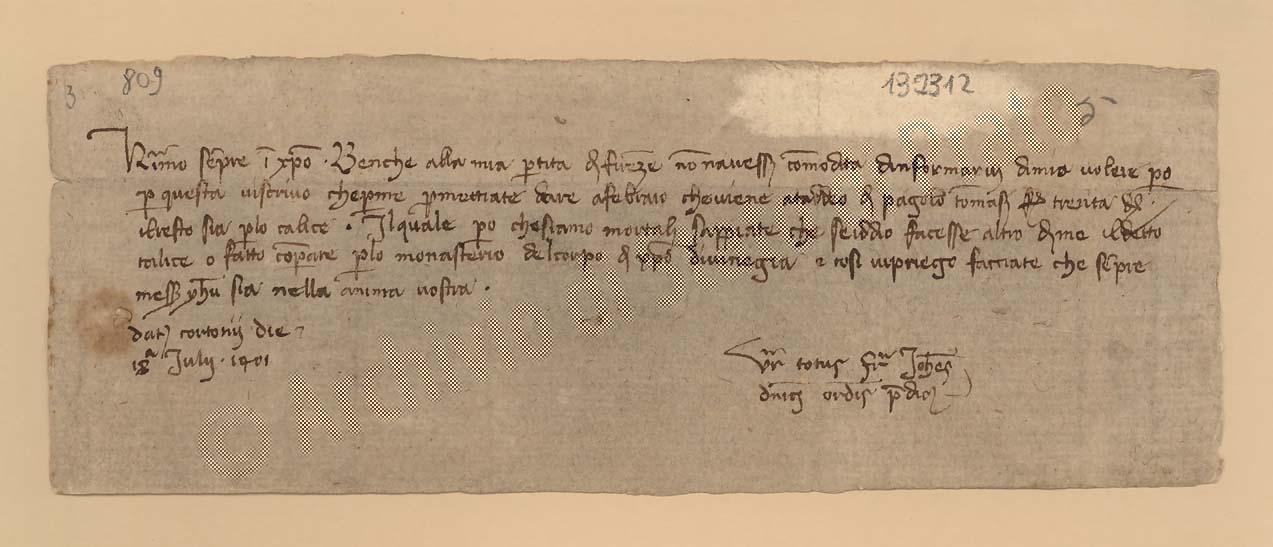 3 809 132312
Karissimo sempre in xpo. Benche alla mia partita di firenze non navessi comodita dinformarvi di mio volere pero
per questa viscrivo che per me promettiate dare a febraio che viene a di pagolo tomasi f trenta
il resto sia per lo calice. Il quale pero che siamo mortali sappiate che se iddio facesse altro di me il detto
calice o fatto comperare per lo monasterio del corpo di xpo di vinegia e cosi vi priego facciate che sempre
messer yhu sia nella anima vostra.
dat cortonii die
18a Julii. 1401
Vr totus fr Johes
dnici ordis predic
© Archivio di Stato